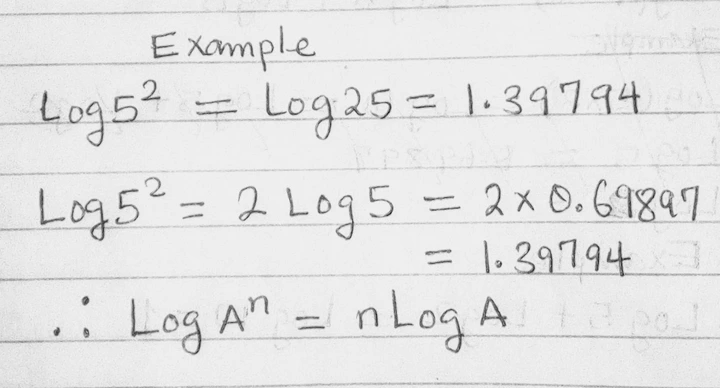 Example
Log 5² = Log 25 = 1.39794
Log 5² = 2 Log 5 = 2 x 0.69897
= 1.39794
∴ Log Aⁿ = n Log A